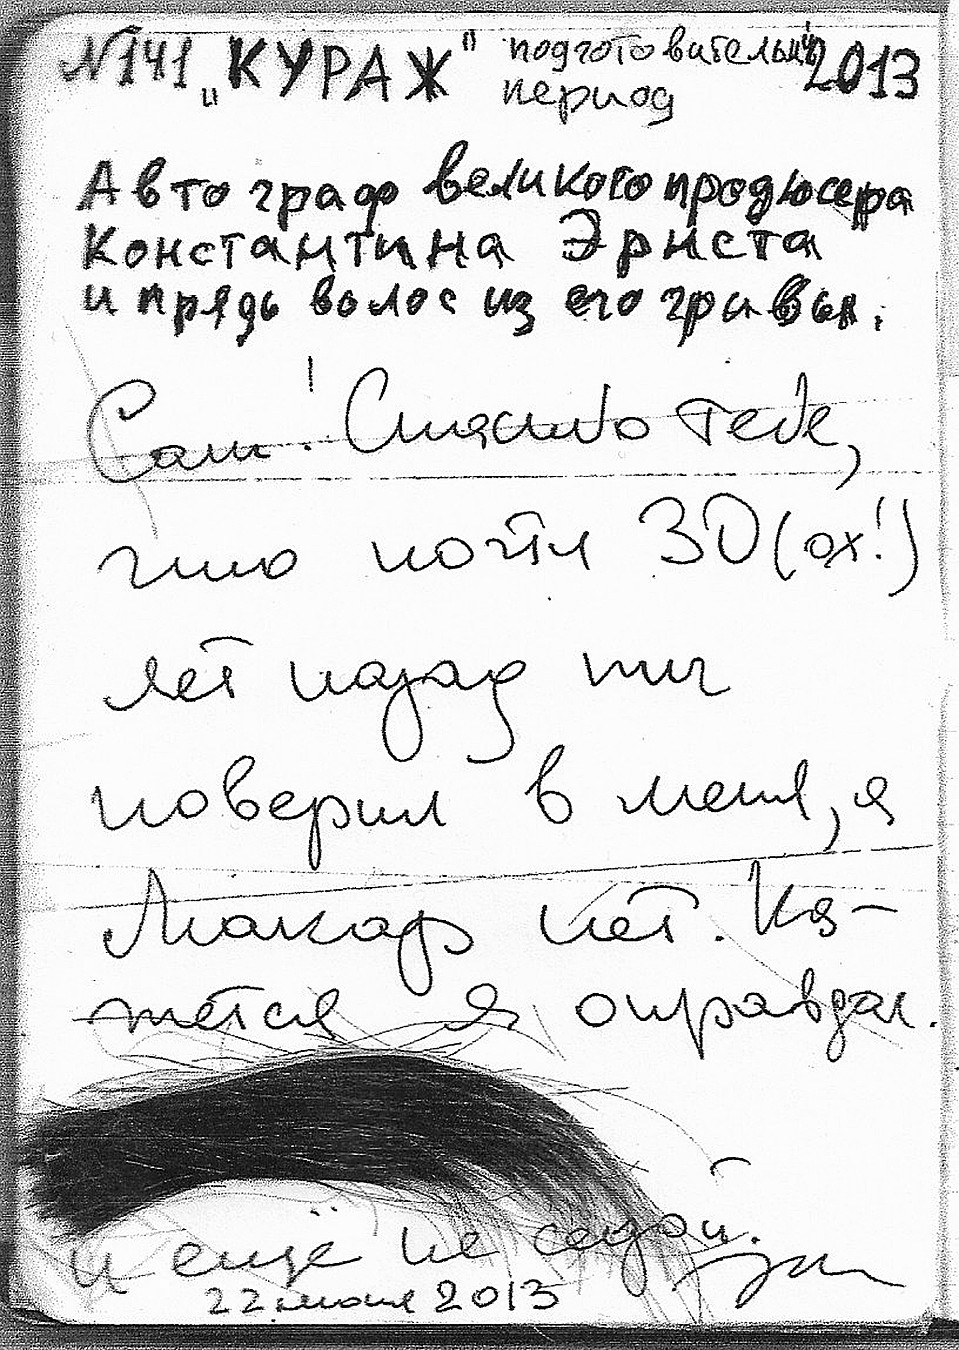 №141 „КУРАЖ" подготовительный 2013
период
Автограф великого продюсера
Константина Эрнста
и прядь волос из его гривы.
Сам! Спасибо тебе,
что почти 30 (ох!)
лет назад ты
поверил в меня, а
Макар нет. Ка-
жется я оправдал.
и ещё не седой.
22 июля 2013